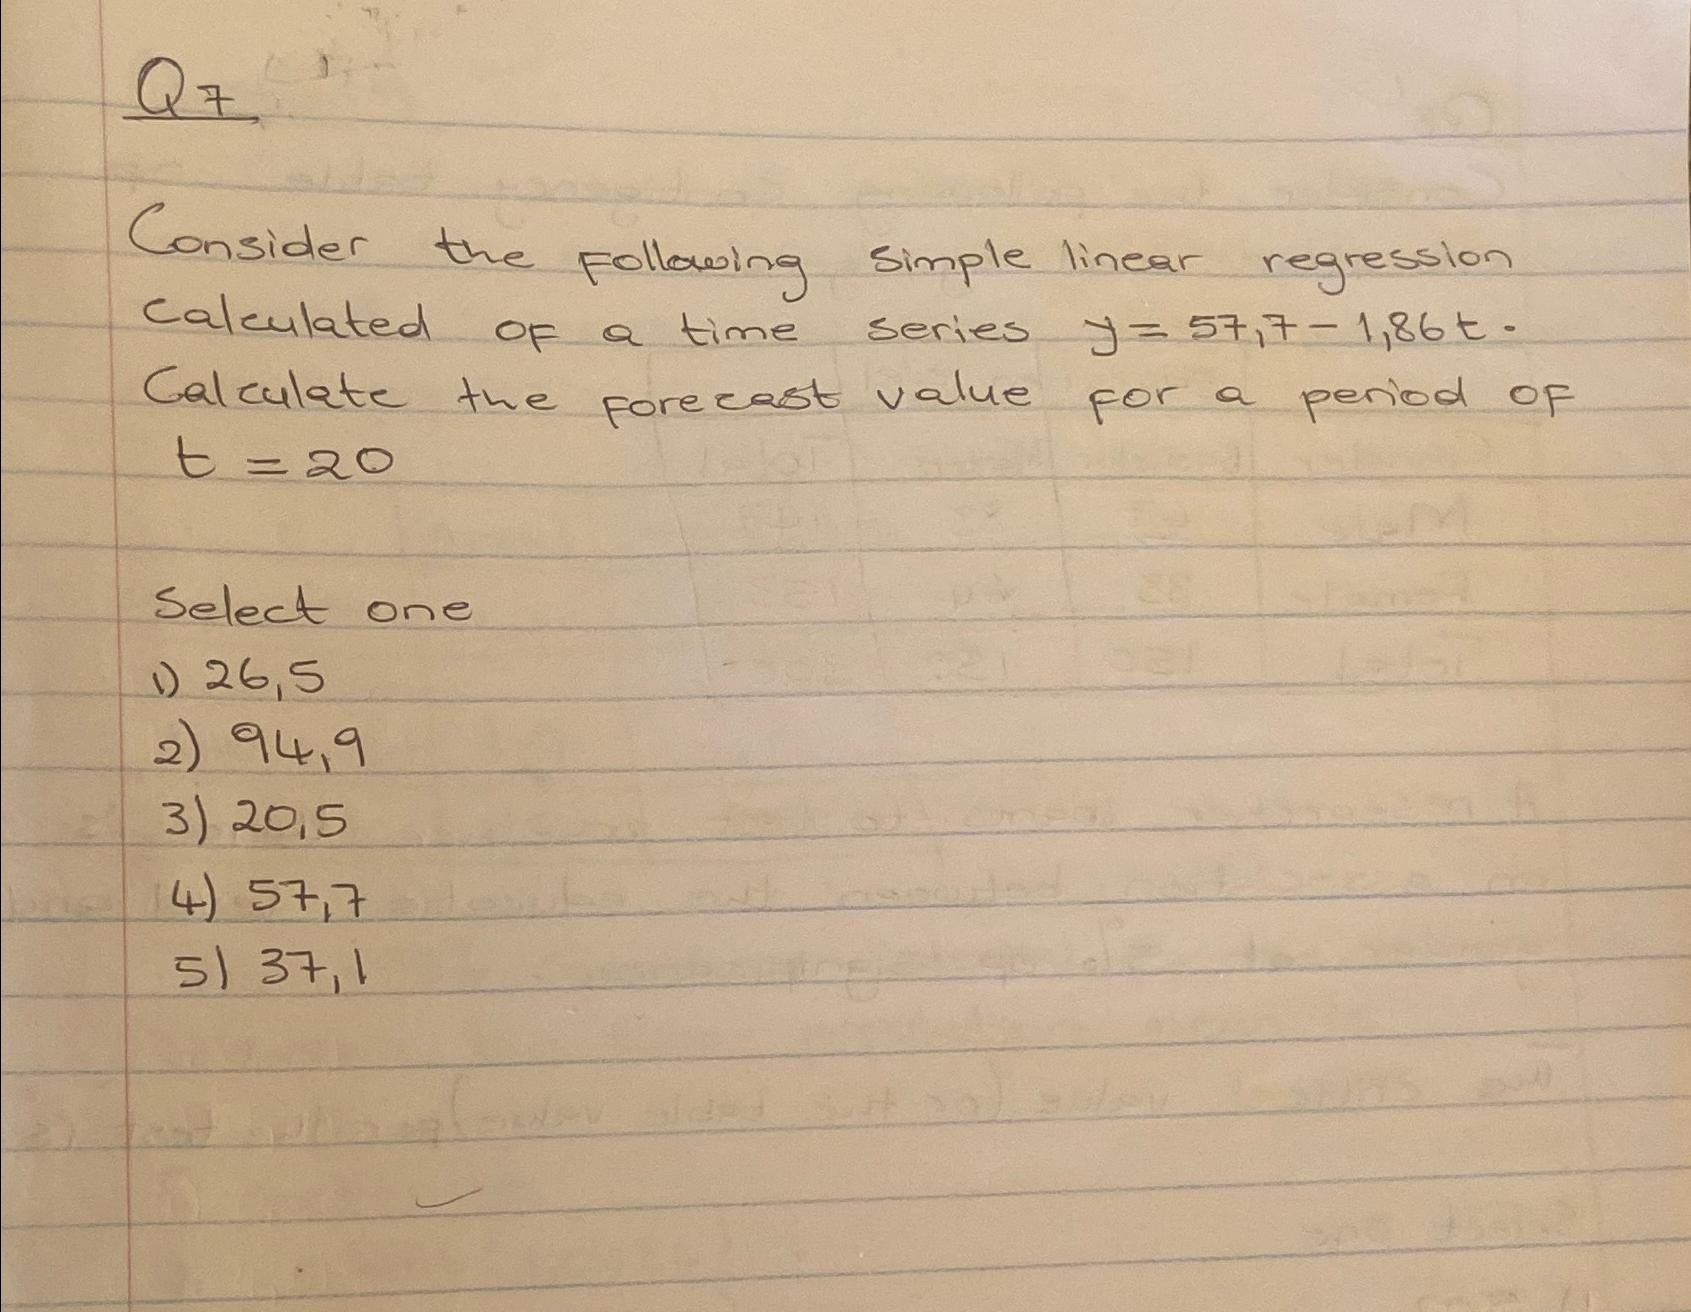 Q7
Consider the following simple linear regression
calculated of a time series y = 57,7 - 1,86t.
Calculate the forecast value for a period of
t = 20
Select one
1) 26,5
2) 94,9
3) 20,5
4) 57,7
5) 37,1